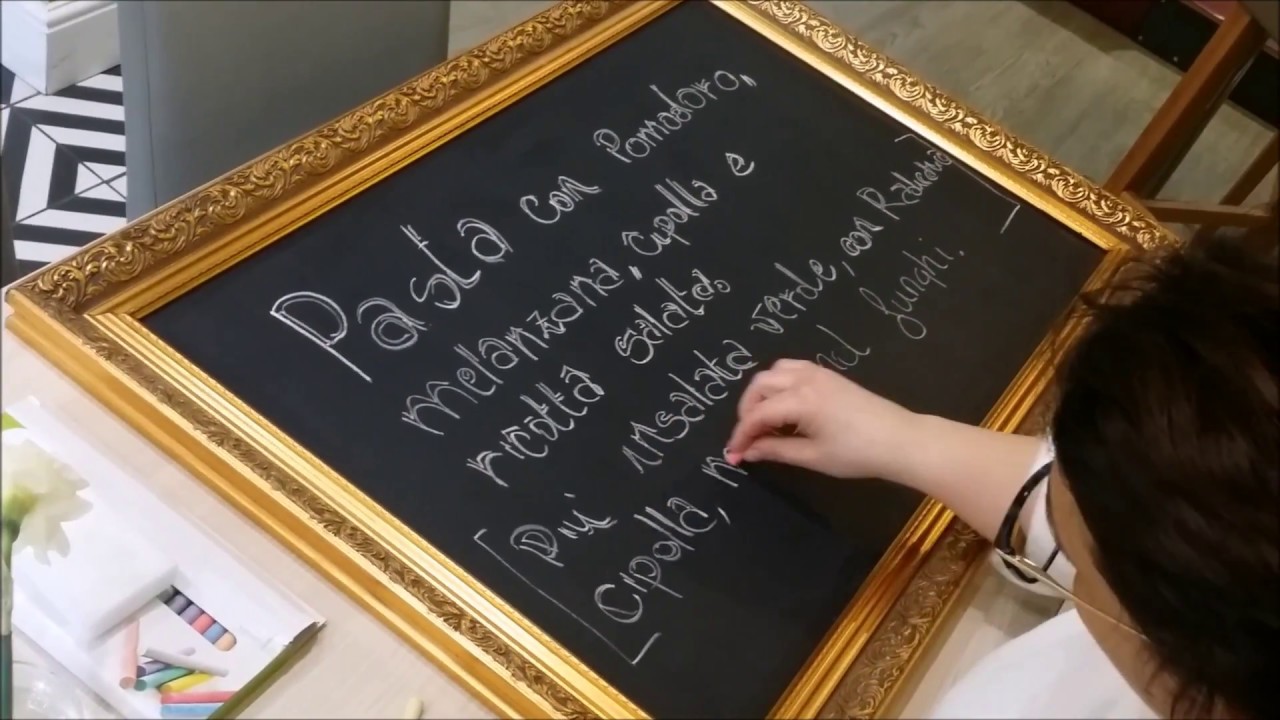 Pasta con Pomodoro,
melanzana, Cipolla e
ricotta salata,
Più insalata verde, con
Cipolla, funghi.